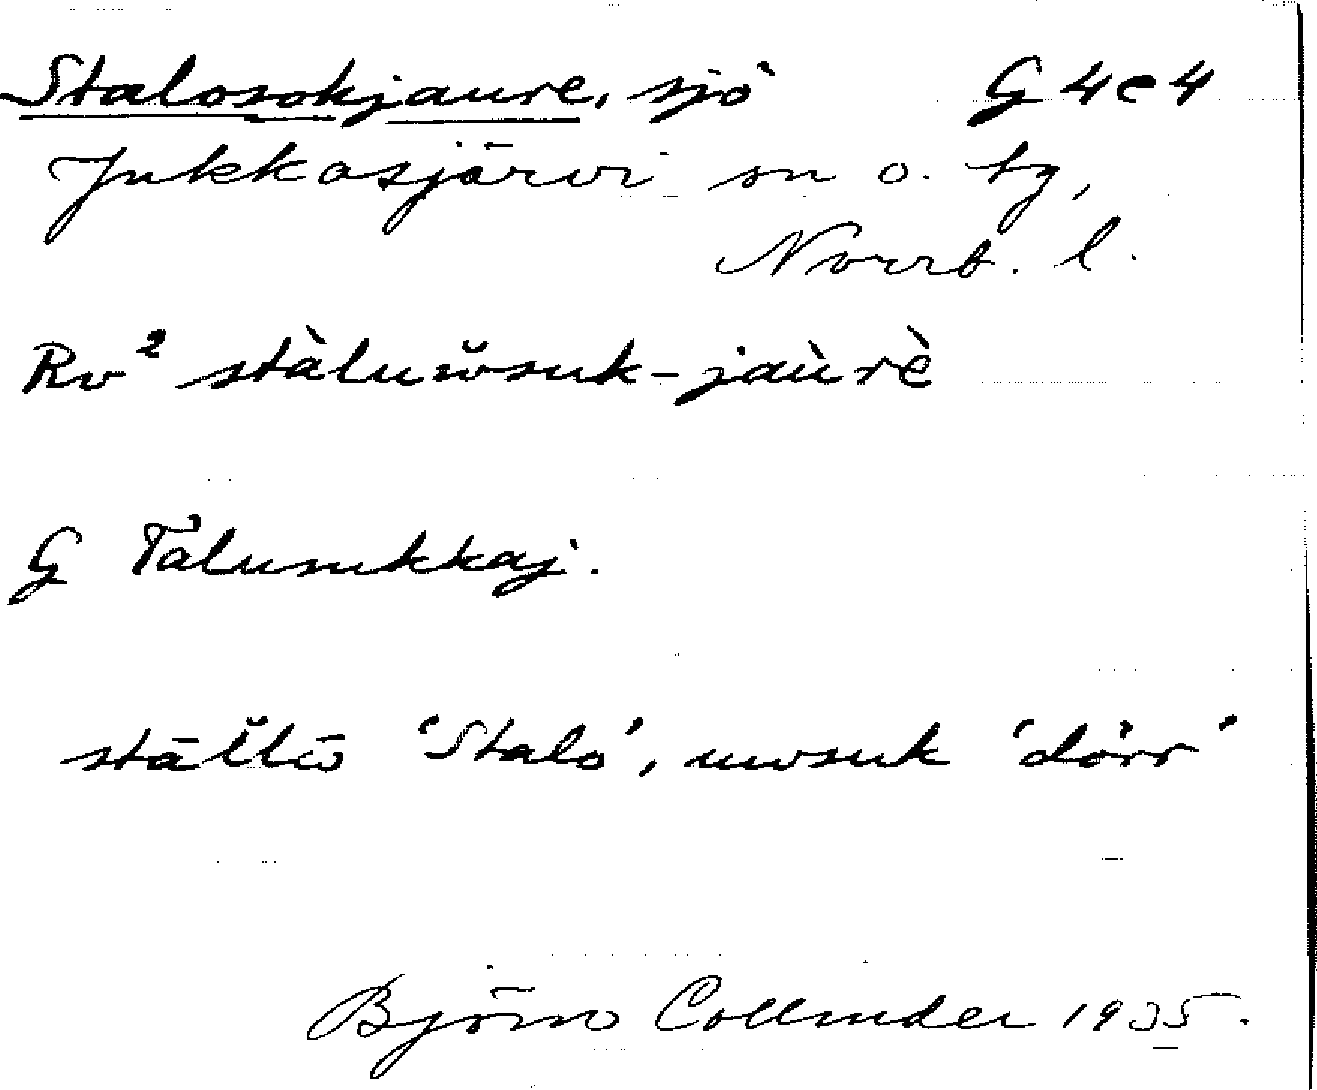 Stalosokjaure, sjö G 4 e 4
Jukkasjärvi sn o. tg,
Norrb. l.
Rv² stàluw̆suk-jaùrè
G Talusukkaj.
stāl̆lō 'Stalo', uwsuk 'dörr'
Björn Collinder 1935.